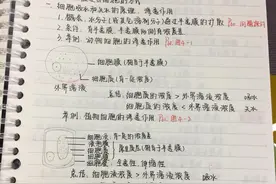 一. 细胞吸水和失水的原理: 渗透作用
1. 概念: 水分子(或其他溶剂分子)通过半透膜的扩散
2. 条件: 有半透膜、半透膜两侧有浓度差
3. 举例: 动物细胞的渗透作用 图4-1
细胞膜(相当于半透膜)
细胞质(有一定浓度)
外界溶液
总结: 细胞质的浓度 > 外界溶液浓度 吸水
细胞质的浓度 < 外界溶液浓度 失水
举例: 植物细胞的渗透作用 图4-2
细胞液
液泡膜
细胞质
细胞膜
细胞壁: 全透性、伸缩性
总结: 细胞液浓度 > 外界溶液浓度 吸水